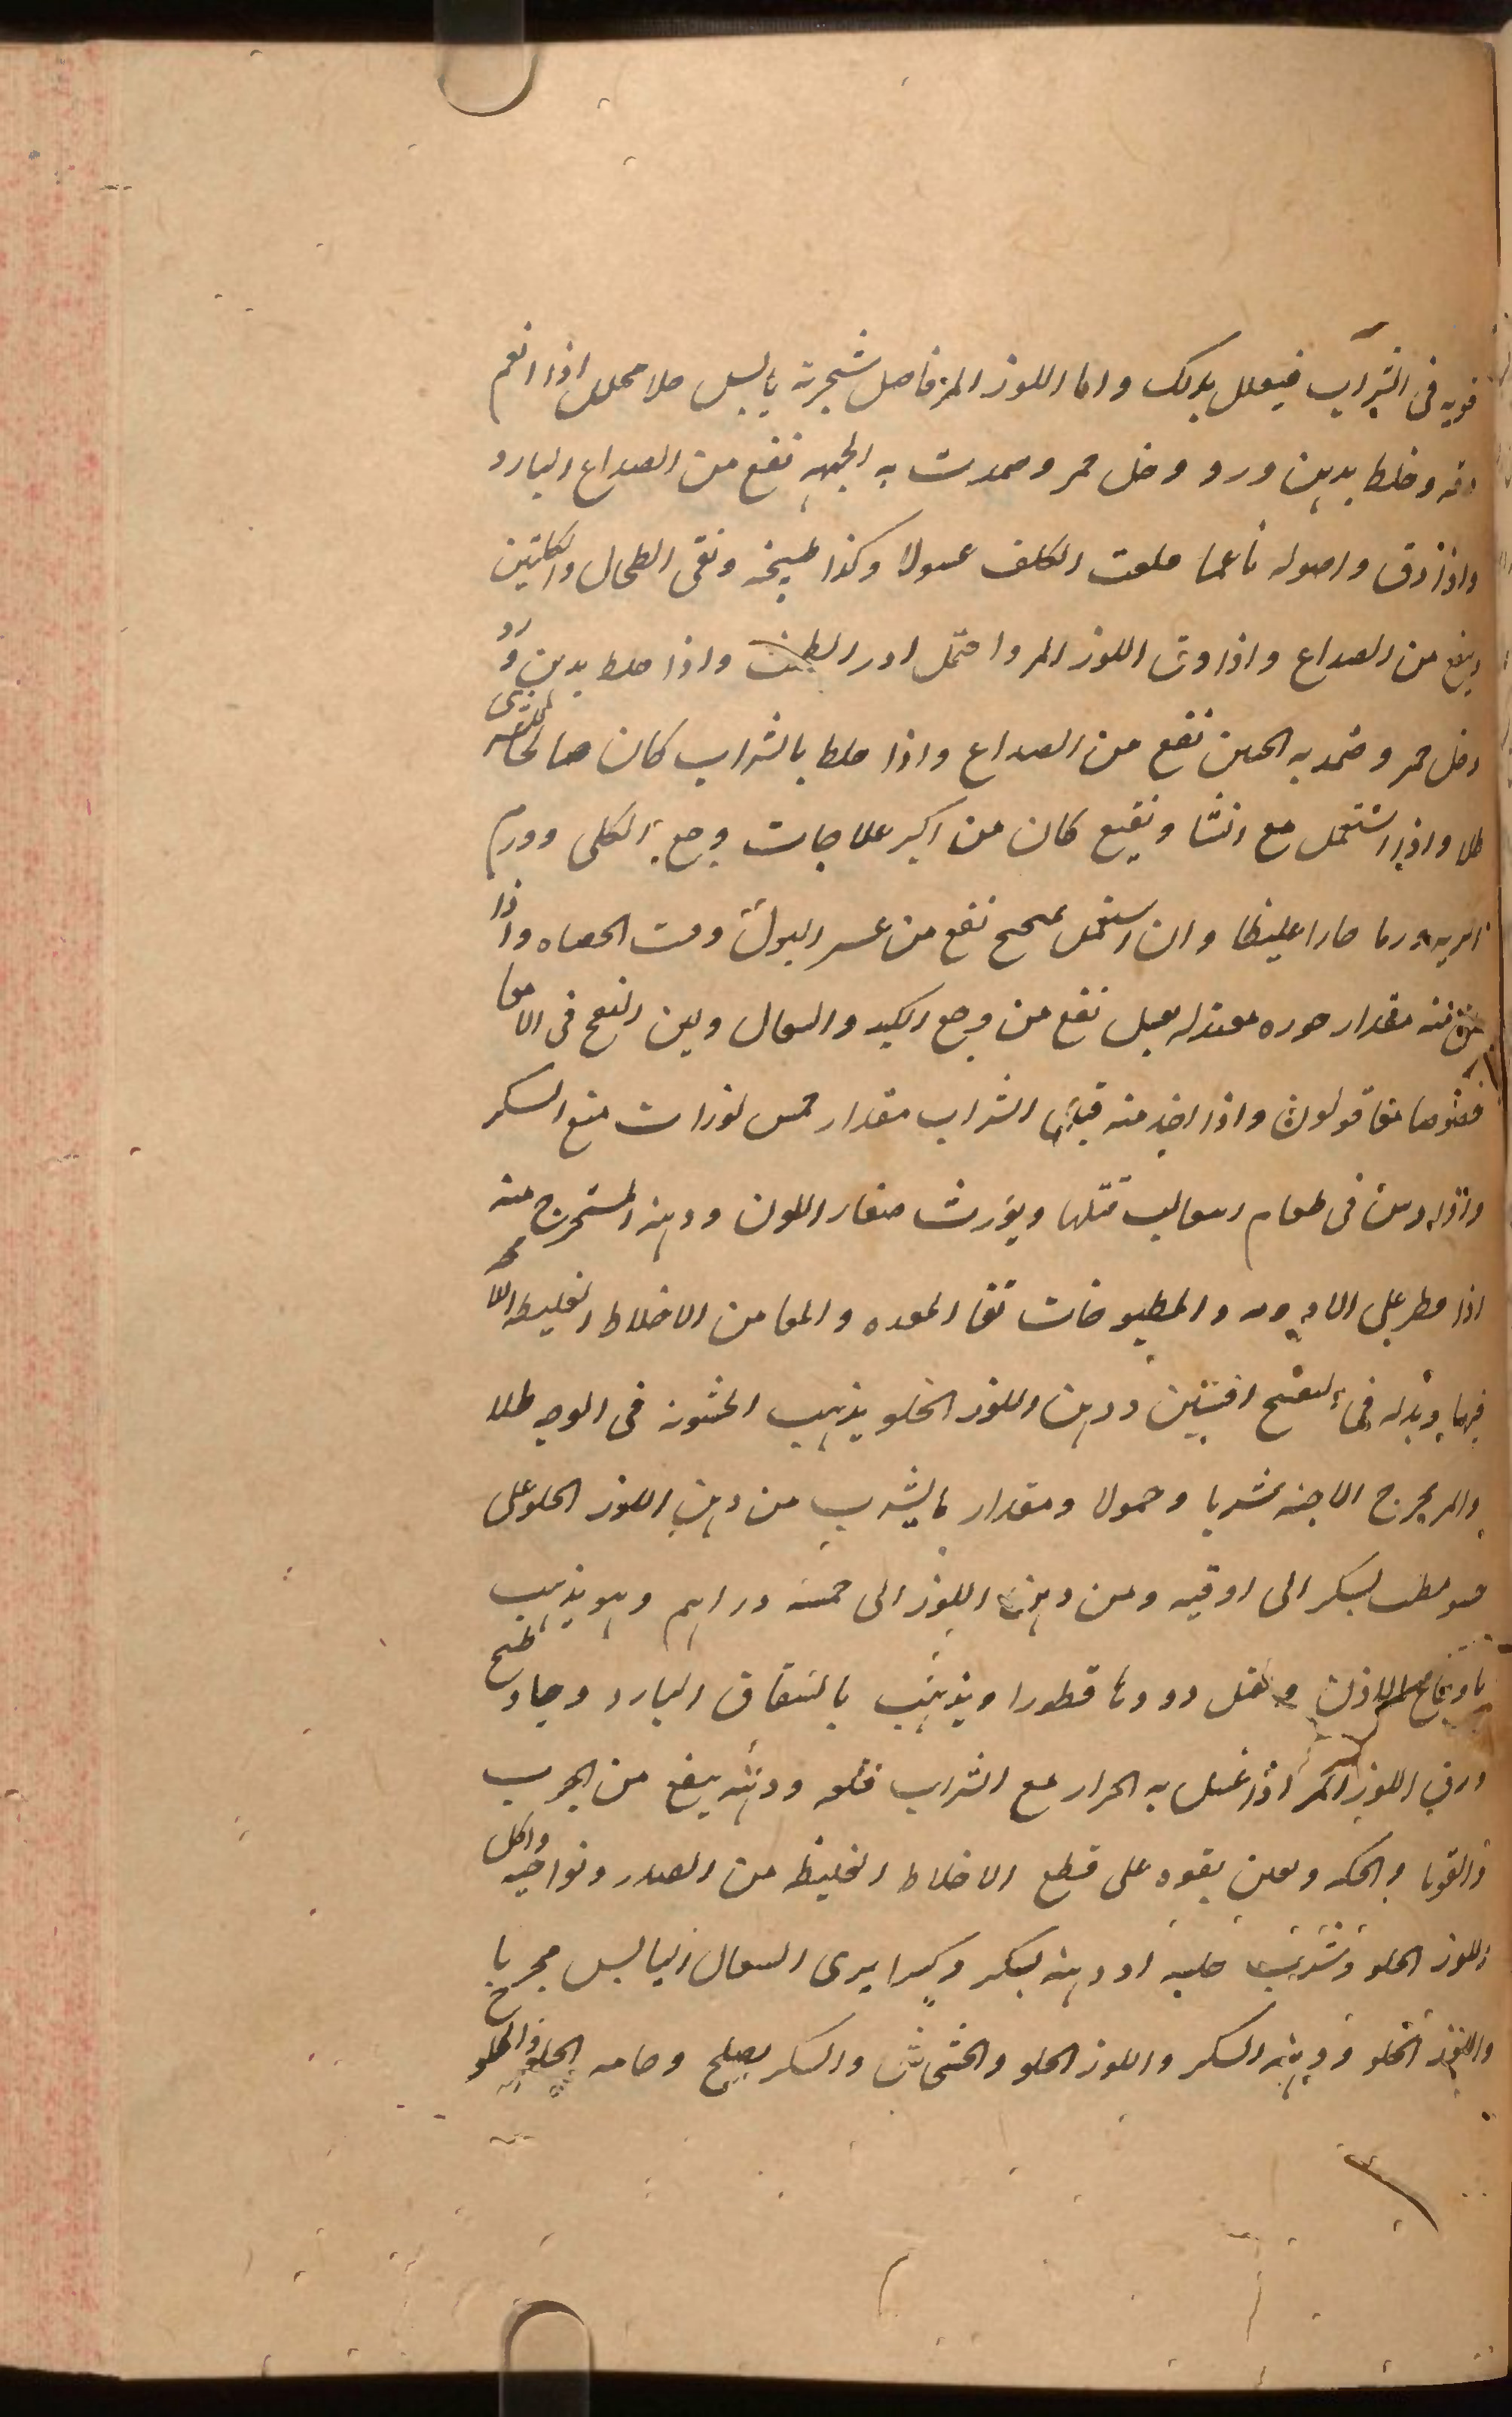 قويه فى الشراب فيعلل بذلك واما اللوز المر فاصل شجرته يابس جلا محلل اذا انعم
دقه وخلط بدهن ورد وخل خمر وضمدت به الجبهه نفع من الصداع البارد
واذا دق واصوله ناعما قلعت الكلف غسولا وكذا طبيخه ونقى الطحال والكليتين
وينفع من الصداع واذا دق اللوز المر واحتمل ادر الطمث واذا خلط بدهن ورد
وخل خمر وضمد به الجبين نفع من الصداع واذا خلط بالشراب كان صالحا للشرى
طلا واذا استعمل مع النشا ونعنع كان من اكبر علاجات وجع الكلى وورم
الريه ورما حارا غليظا وان استعمل بميبختج نفع من عسر البول وفتت الحصاه واذا
لعق منه مقدار جوزه معتدله بعسل نفع من وجع الكبد والسعال ولين النفخ فى الامعا
خصوصا معا قولون واذا اخذ منه قبل الشراب مقدار خمس لوزات منع السكر
واذا دس فى طعام الثعالب قتلها ويورث صفار اللون ودهنه المستخرج منه
اذا قطر على الادويه والمطبوخات نقا المعده والمعا من الاخلاط الغليظه
فيها وبدله فى التفتيح افسنتين ودهن اللوز الحلو يذهب الخشونه فى الوجه طلا
والمر يخرج الاجنه شربا وحمولا ومقدار مايشرب من دهن اللوز الحلو على
بسكر الى اوقيه ومن دهن اللوز الى خمسه دراهم وهو يذهب
باوجاع الاذن ويقتل دودها قطورا ويذهب بالشقاق البارد
ورق اللوز المر اذا غسل به الحزاز مع الشراب قلعه ودهنه ينفع من الجرب
والقوبا والحكه ويعين بقوه على قطع الاخلاط الغليظه من الصدر ونواحيه واكل
اللوز الحلو وشرب حليبه او دهنه بسكر وكثيرا يبرى السعال اليابس مجربا
واللوز الحلو ودهنه السكر واللوز الحلو والخشخاش والسكر يصلح